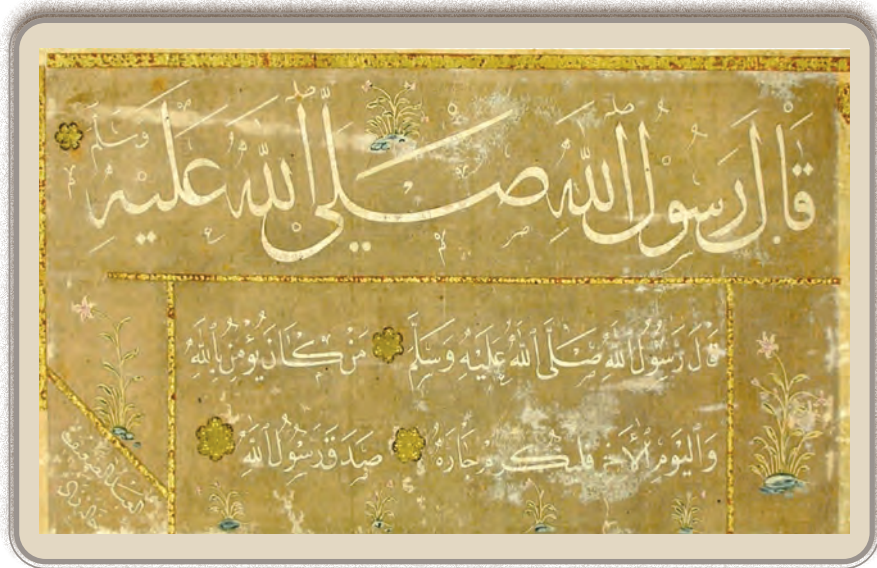 قَالَ رَسُولُ اللّٰهِ صَلَّى اللّٰهُ عَلَيْهِ وَسَلَّمَ
قَالَ رَسُولُ اللّٰهِ صَلَّى اللّٰهُ عَلَيْهِ وَسَلَّمَ مَنْ كَانَ يُؤْمِنُ بِاللّٰهِ
وَالْيَوْمِ الْاٰخِرِ فَلْيُكْرِمْ جَارَهُ صَدَقَ رَسُولُ اللّٰهِ